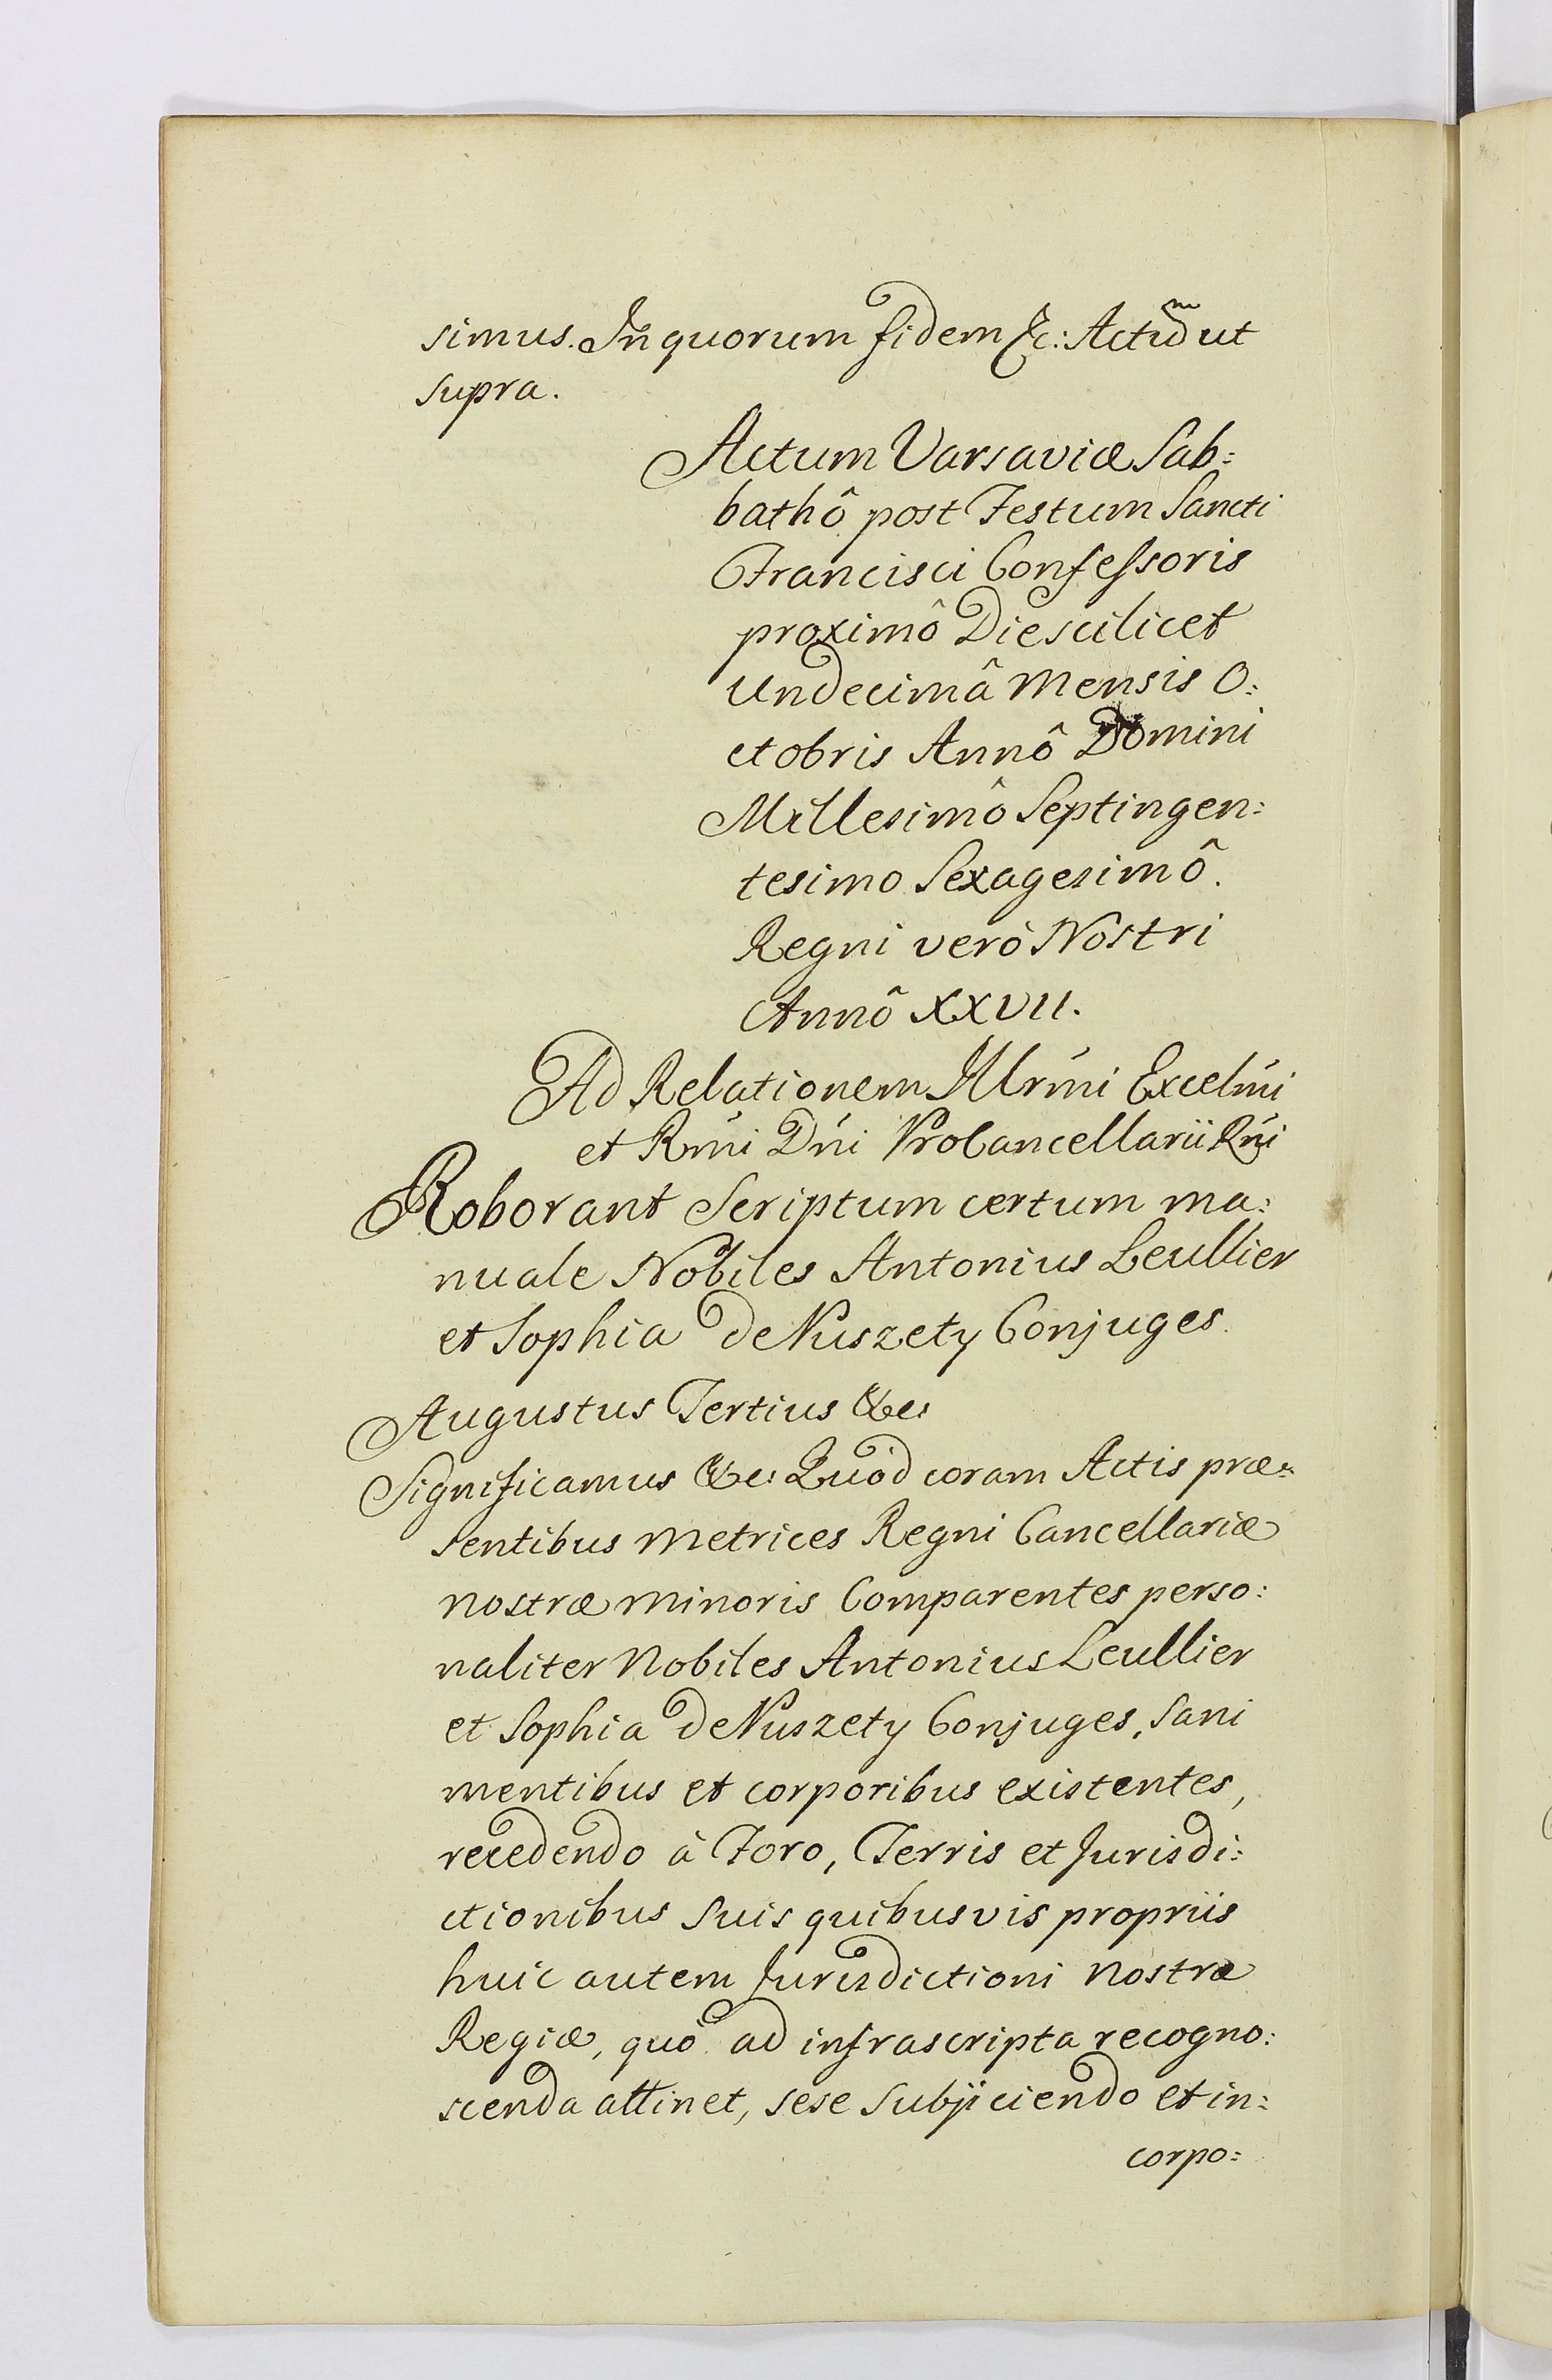 simus. In quorum fidem &c: Actum ut
supra.
Actum Varsaviæ Sab:
bathô post Festum Sancti
Francisci Confessoris
proximô Die scilicet
Undecimâ Mensis O:
ctobris Annô Domini
Millesimô Septingen:
tesimo Sexagesimô.
Regni verò Nostri
Annô XXVII.
Ad Relationem Illrmi Excelmi
et Rmi Dni ProCancellarii Rni
Roborant Scriptum certum ma:
nuale Nobiles Antonius Leullier
et Sophia de Nuszety Conjuges.
Augustus Tertius &c:
Significamus &c: Quòd coram Actis præ:
sentibus Metrices Regni Cancellariæ
nostræ minoris Comparentes perso:
naliter Nobiles Antonius Leullier
et Sophia de Nuszety Conjuges, sani
mentibus et corporibus existentes,
recedendo à Foro, Terris et Jurisdi:
ctionibus suis quibusvis propriis
huic autem Jurisdictioni nostræ
Regiæ, quò ad infrascripta recogno:
scenda attinet, sese subjiciendo et in:
corpo: